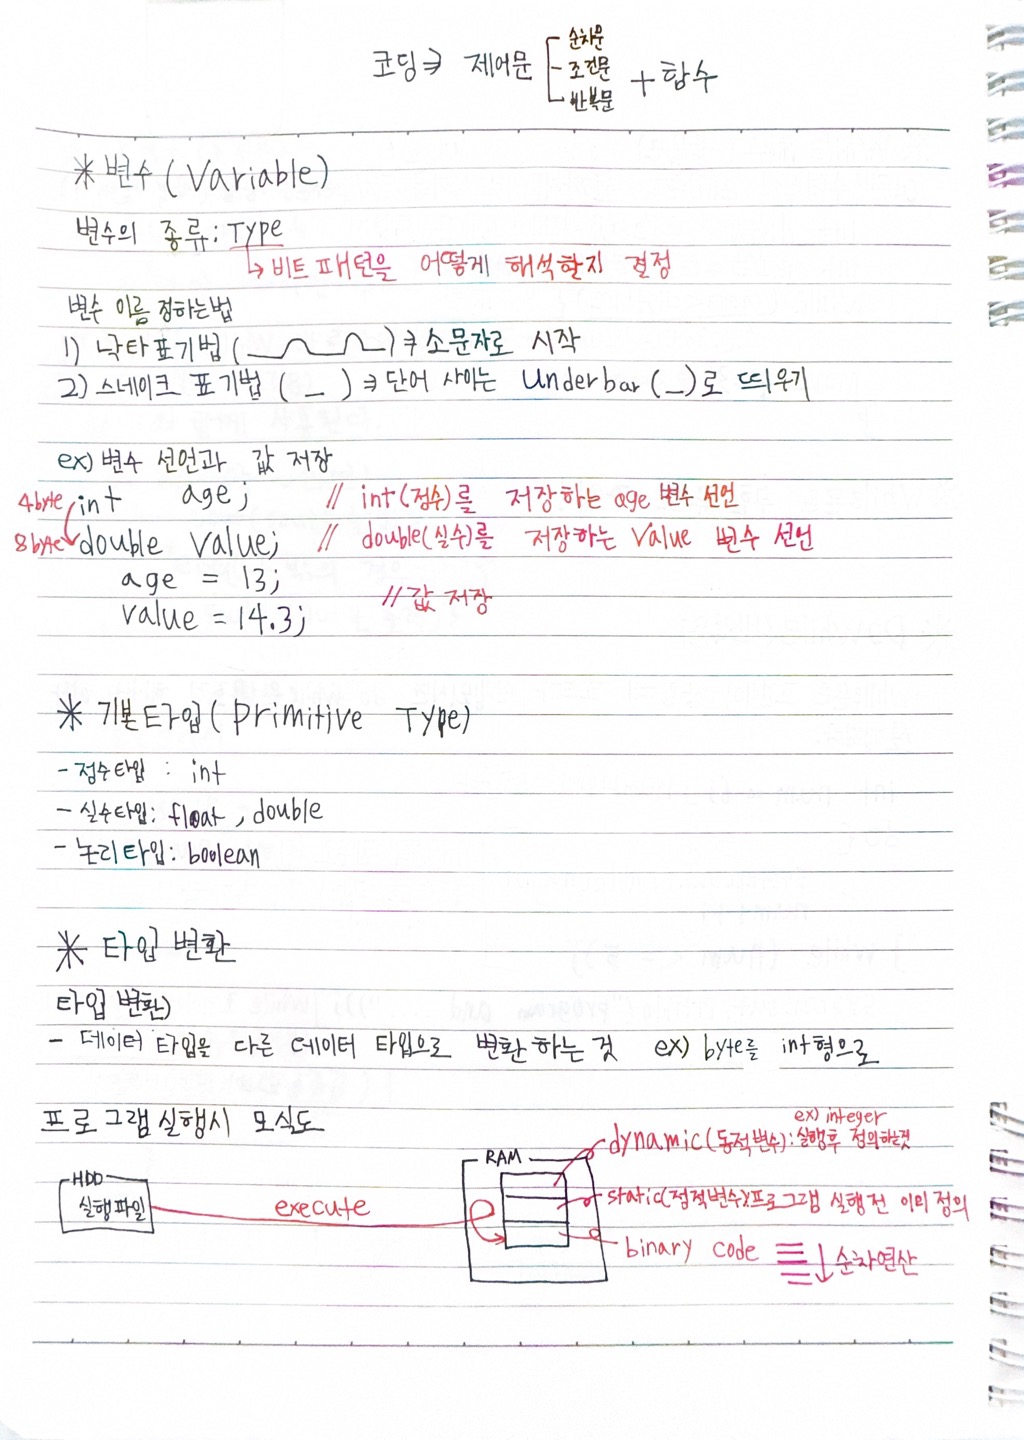 코딩 ⇒ 제어문 순차문 조건문 반복문 + 함수
* 변수 (Variable)
변수의 종류 : Type
↳ 비트 패턴을 어떻게 해석할지 결정
변수 이름 정하는법
1) 낙타표기법 ( ) ⇒ 소문자로 시작
2) 스네이크 표기법 ( _ ) ⇒ 단어 사이는 Underbar (_)로 띄우기
ex) 변수 선언과 값 저장
4byte int age; // int(정수)를 저장하는 age 변수 선언
8byte double value; // double(실수)를 저장하는 Value 변수 선언
age = 13;
value = 14.3; // 값 저장
* 기본타입 (primitive Type)
- 정수타입 : int
- 실수타입 : float , double
- 논리타입 : boolean
* 타입 변환
타입 변환)
- 데이터 타입을 다른 데이터 타입으로 변환하는 것 ex) byte를 int형으로
프로그램실행시 모식도
ex) integer
dynamic(동적변수) : 실행후 정의하는것
HDD
실행파일
execute
RAM
static(정적변수) 프로그램 실행전 이미 정의
binary code ↓ 순차연산